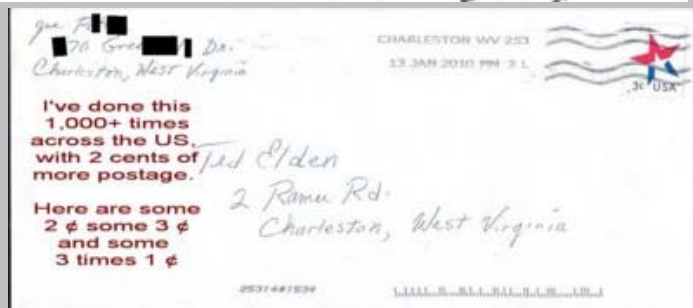 Dr.
Charleston, West Virginia
CHARLESTON WV 253
13 JAN 2010 PM 3 L
3c USA
I've done this
1,000+ times
across the US,
with 2 cents of
more postage.
Here are some
2 ¢ some 3 ¢
and some
3 times 1 ¢
Ted Elden
2 Ramu Rd.
Charleston, West Virginia